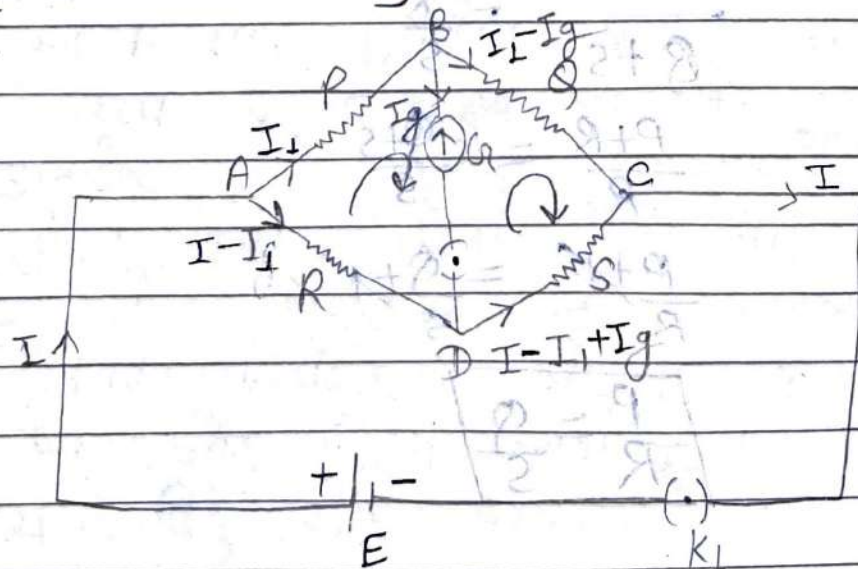 B
I1-Ig
P
Q
Ig
I1
G
A
C
I
I-I1
R
S
I
D I-I1+Ig
+ -
E
K1